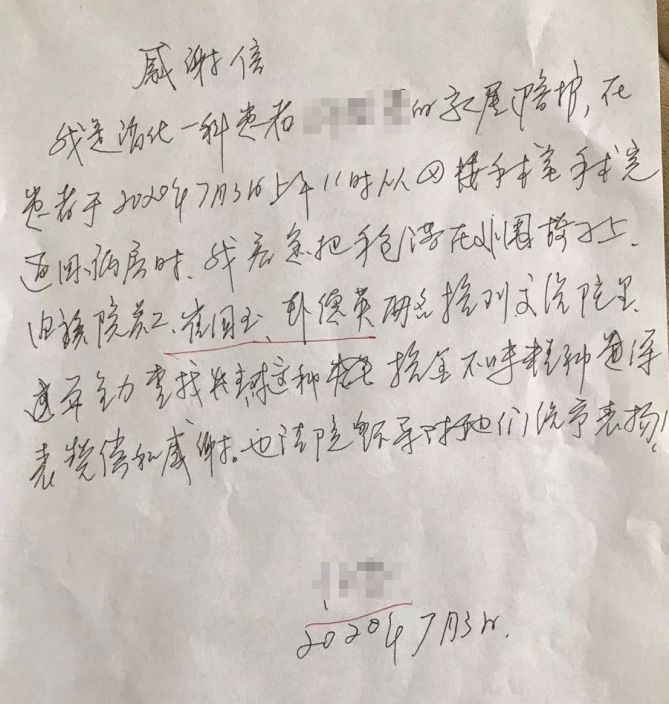 感谢信
我是消化一科患者的家属陪护,在
患者于2020年7月3日上午11时从四楼手术室手术完
返回病房时.我着急把手包落在小圆椅子上.
由该院员工、崔国玉、德英两名捡到交给院里.
这种捡金不昧精神值得
表赞偿和感谢。也请院领导对他们给予表扬!
2020年7月3日.